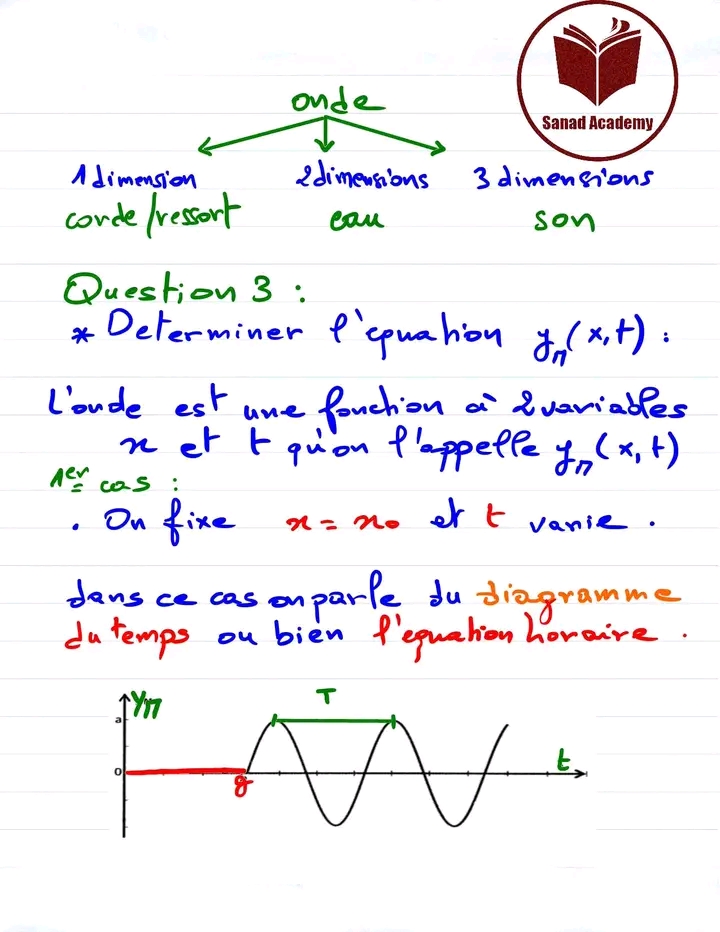 onde
Sanad Academy
1 dimension 2 dimensions 3 dimensions
corde/ressort eau son
Question 3 :
* Determiner l'equation yM(x,t) :
L'onde est une fonction à 2 variables
x et t qu'on l'appelle yM(x,t)
1er cas :
. On fixe x = x0 et t varie .
dans ce cas on parle du diagramme
du temps ou bien l'equation horaire .
yM T
a
0 t
θ